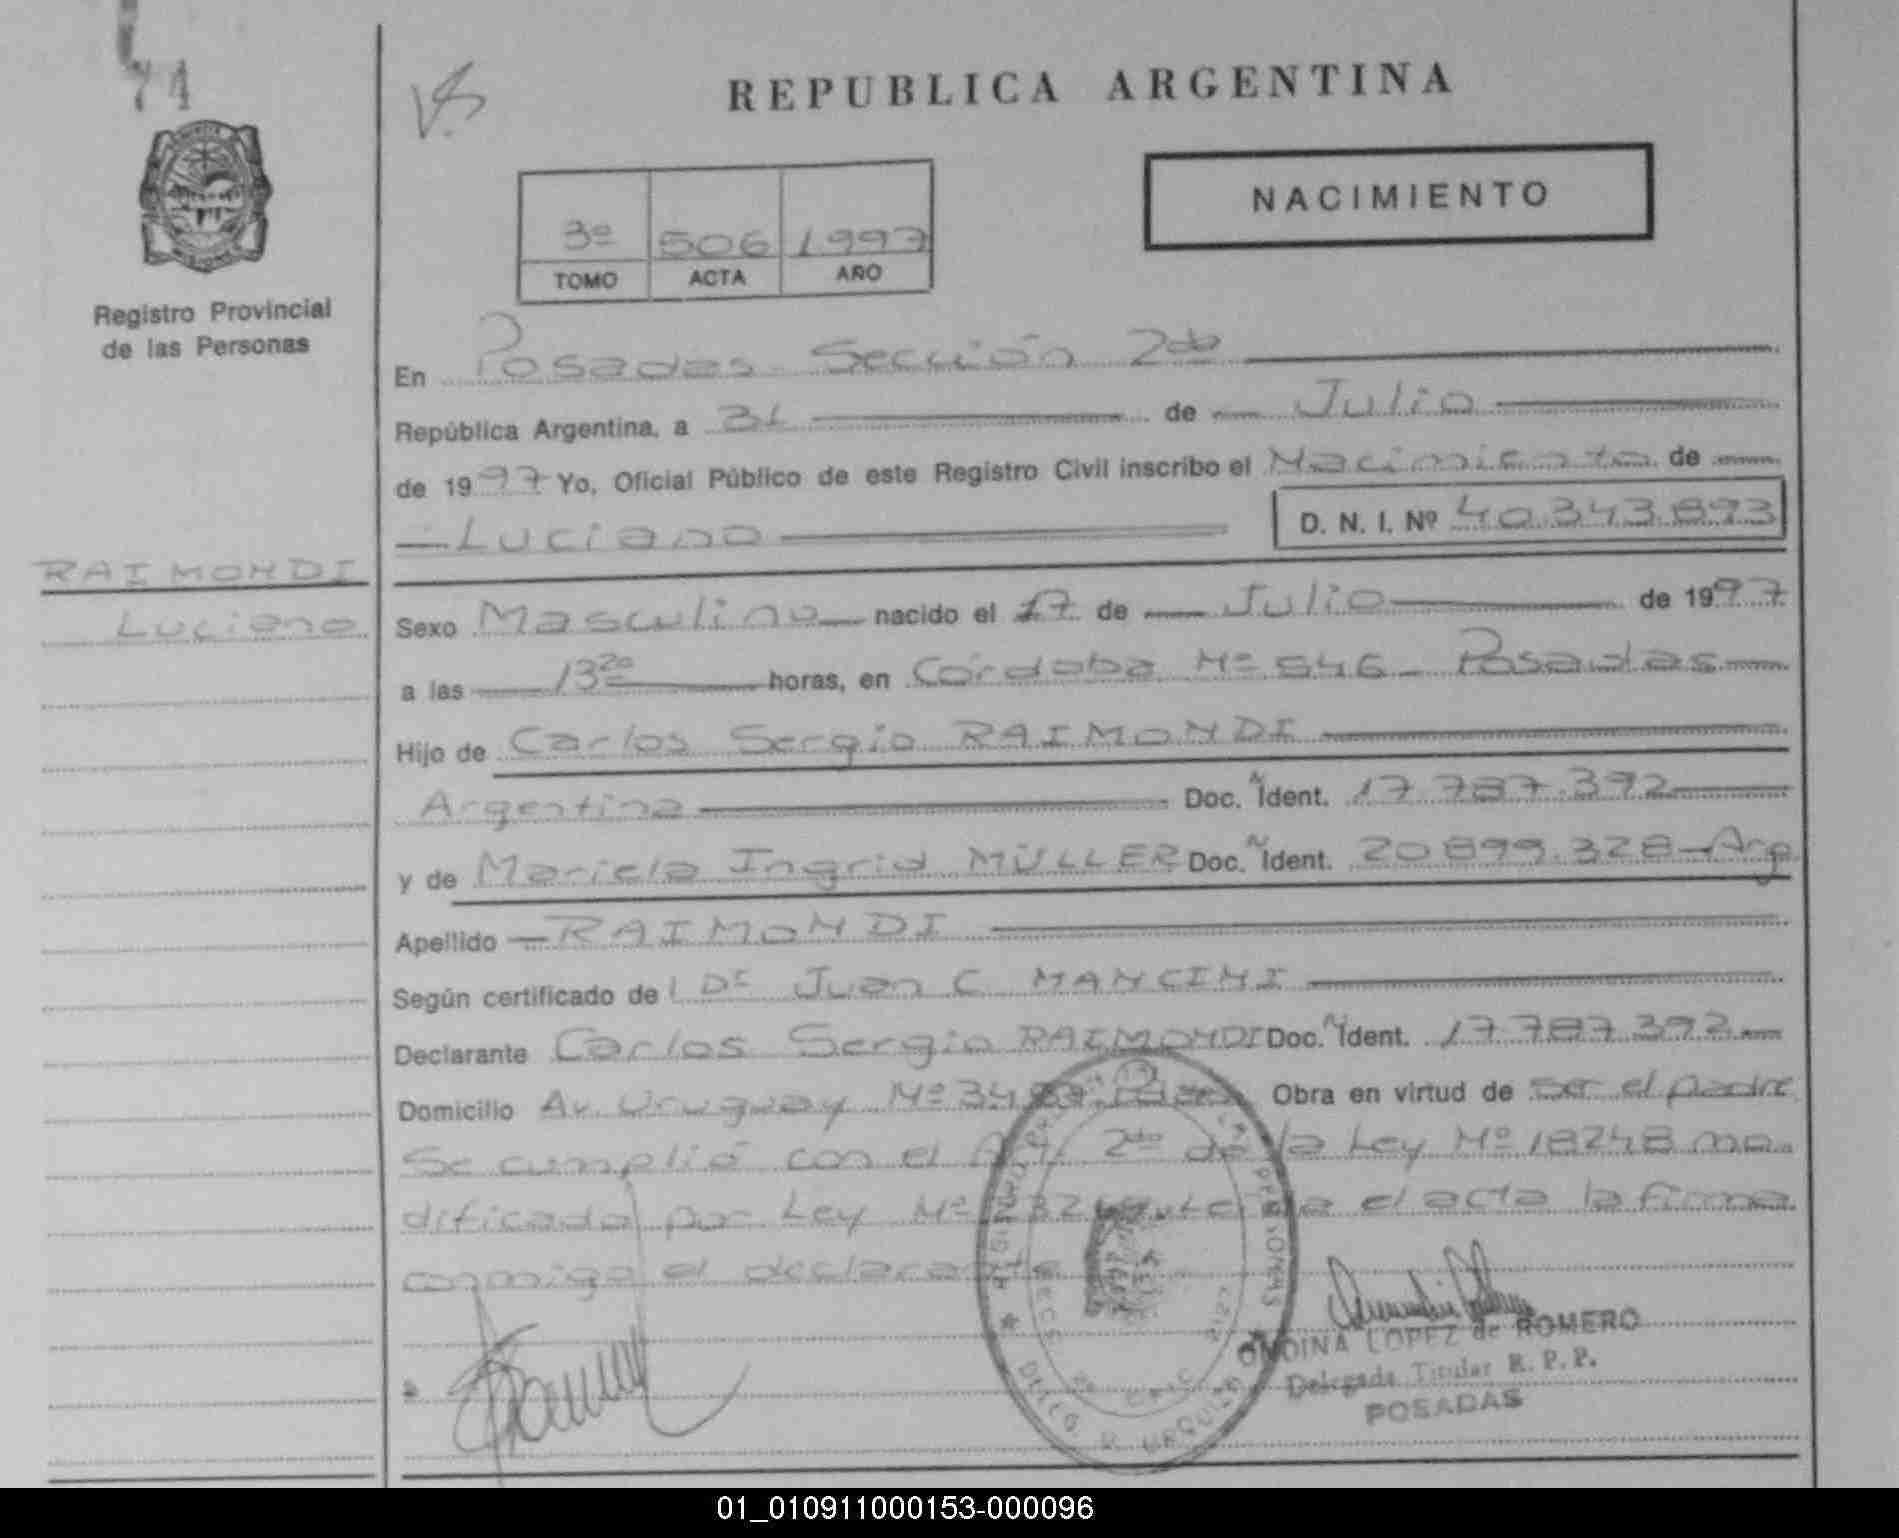 74
REPUBLICA ARGENTINA
NACIMIENTO
3º 506 1997
TOMO ACTA AÑO
Registro Provincial
de las Personas
En Posadas Sección 2da
República Argentina, a 31 de Julio
de 1997 Yo, Oficial Público de este Registro Civil inscribo el Nacimiento de
Luciano D. N. I. Nº 40.343.893
RAIMONDI
Luciano
Sexo Masculino nacido el 17 de Julio de 1997
a las 13 20 horas, en Córdoba Nº 546 - Posadas
Hijo de Carlos Sergio RAIMONDI
Argentina Doc. Ident. 17.787.392
y de Mariela Ingrid MÜLLER Doc. Ident. 20.899.328 - Arg
Apellido RAIMONDI
Según certificado de l Dr Juan C MANCINI
Declarante Carlos Sergio RAIMONDI Doc. Ident. 17.787.392
Domicilio Av. Uruguay Nº Obra en virtud de ser el padre
Se cumplió con el Art 2do de la Ley Nº 18248 mo
dificado por Ley Nº el acta la firma
conmigo el declarante
ONDINA LOPEZ de ROMERO
Delegada Titular R. P. P.
POSADAS
01_010911000153-000096